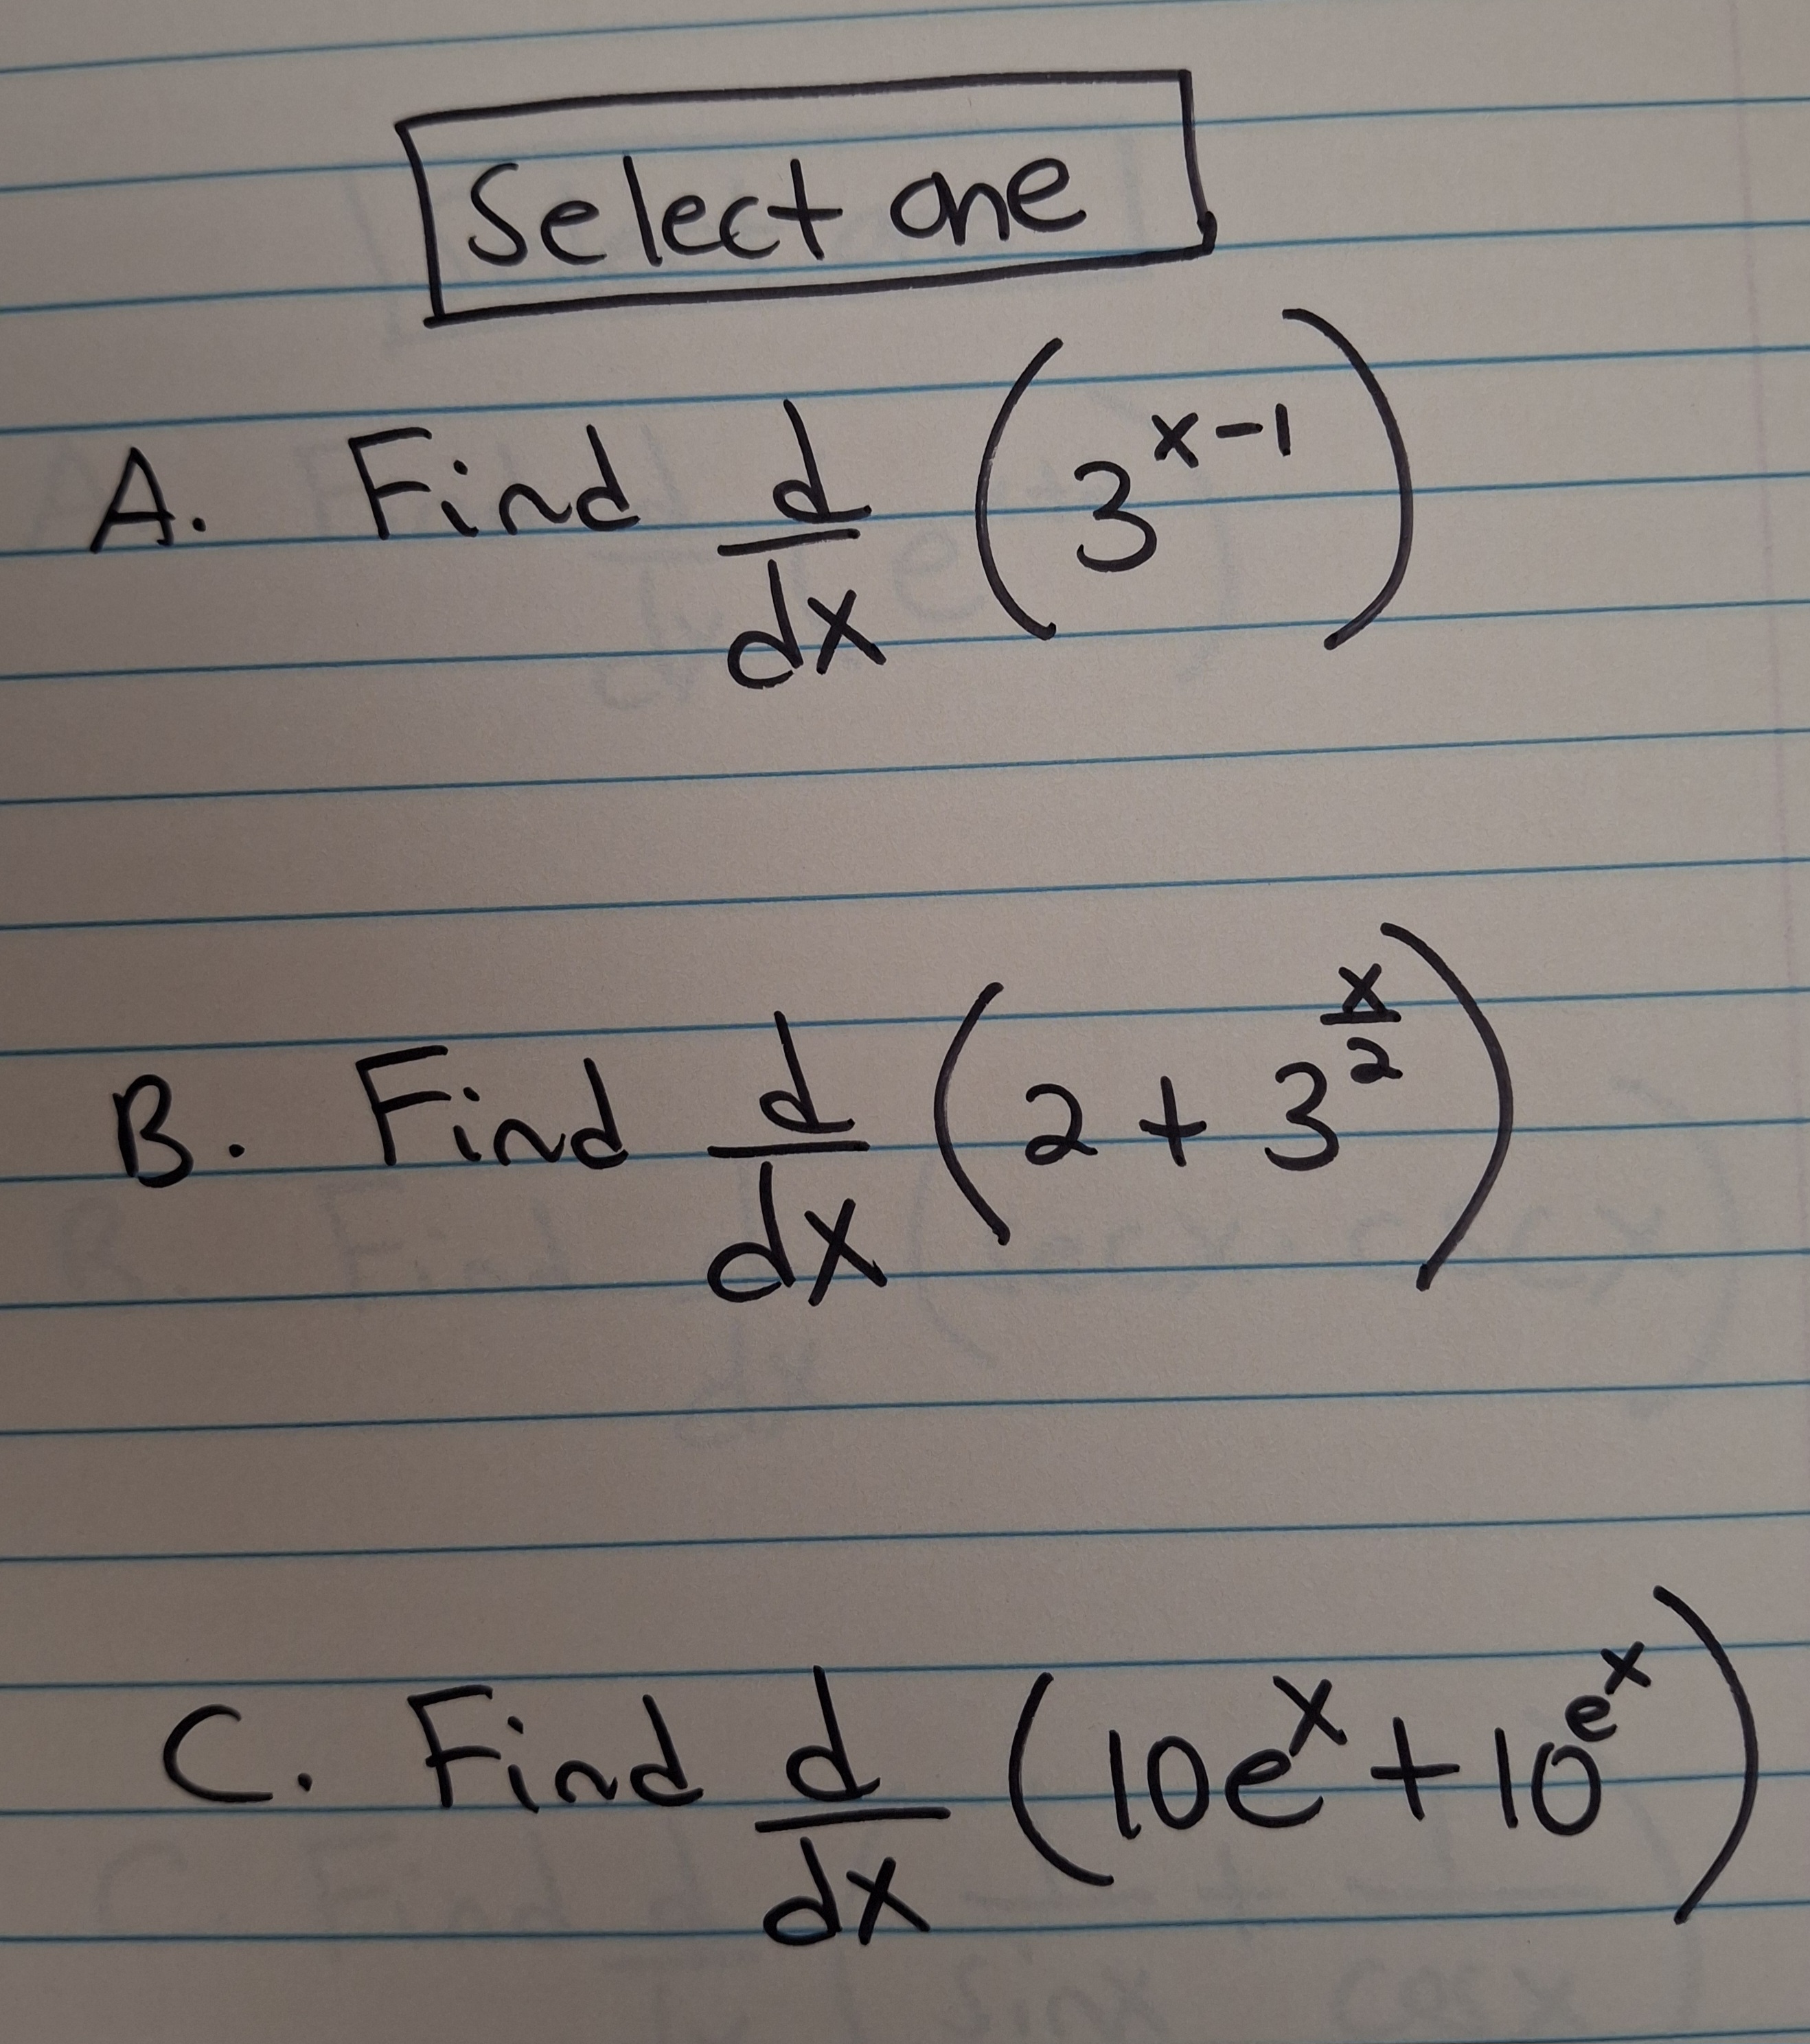 Select one
A. Find d/dx (3^(x-1))
B. Find d/dx (2 + 3^(x/2))
C. Find d/dx (10e^x + 10^(e^x))